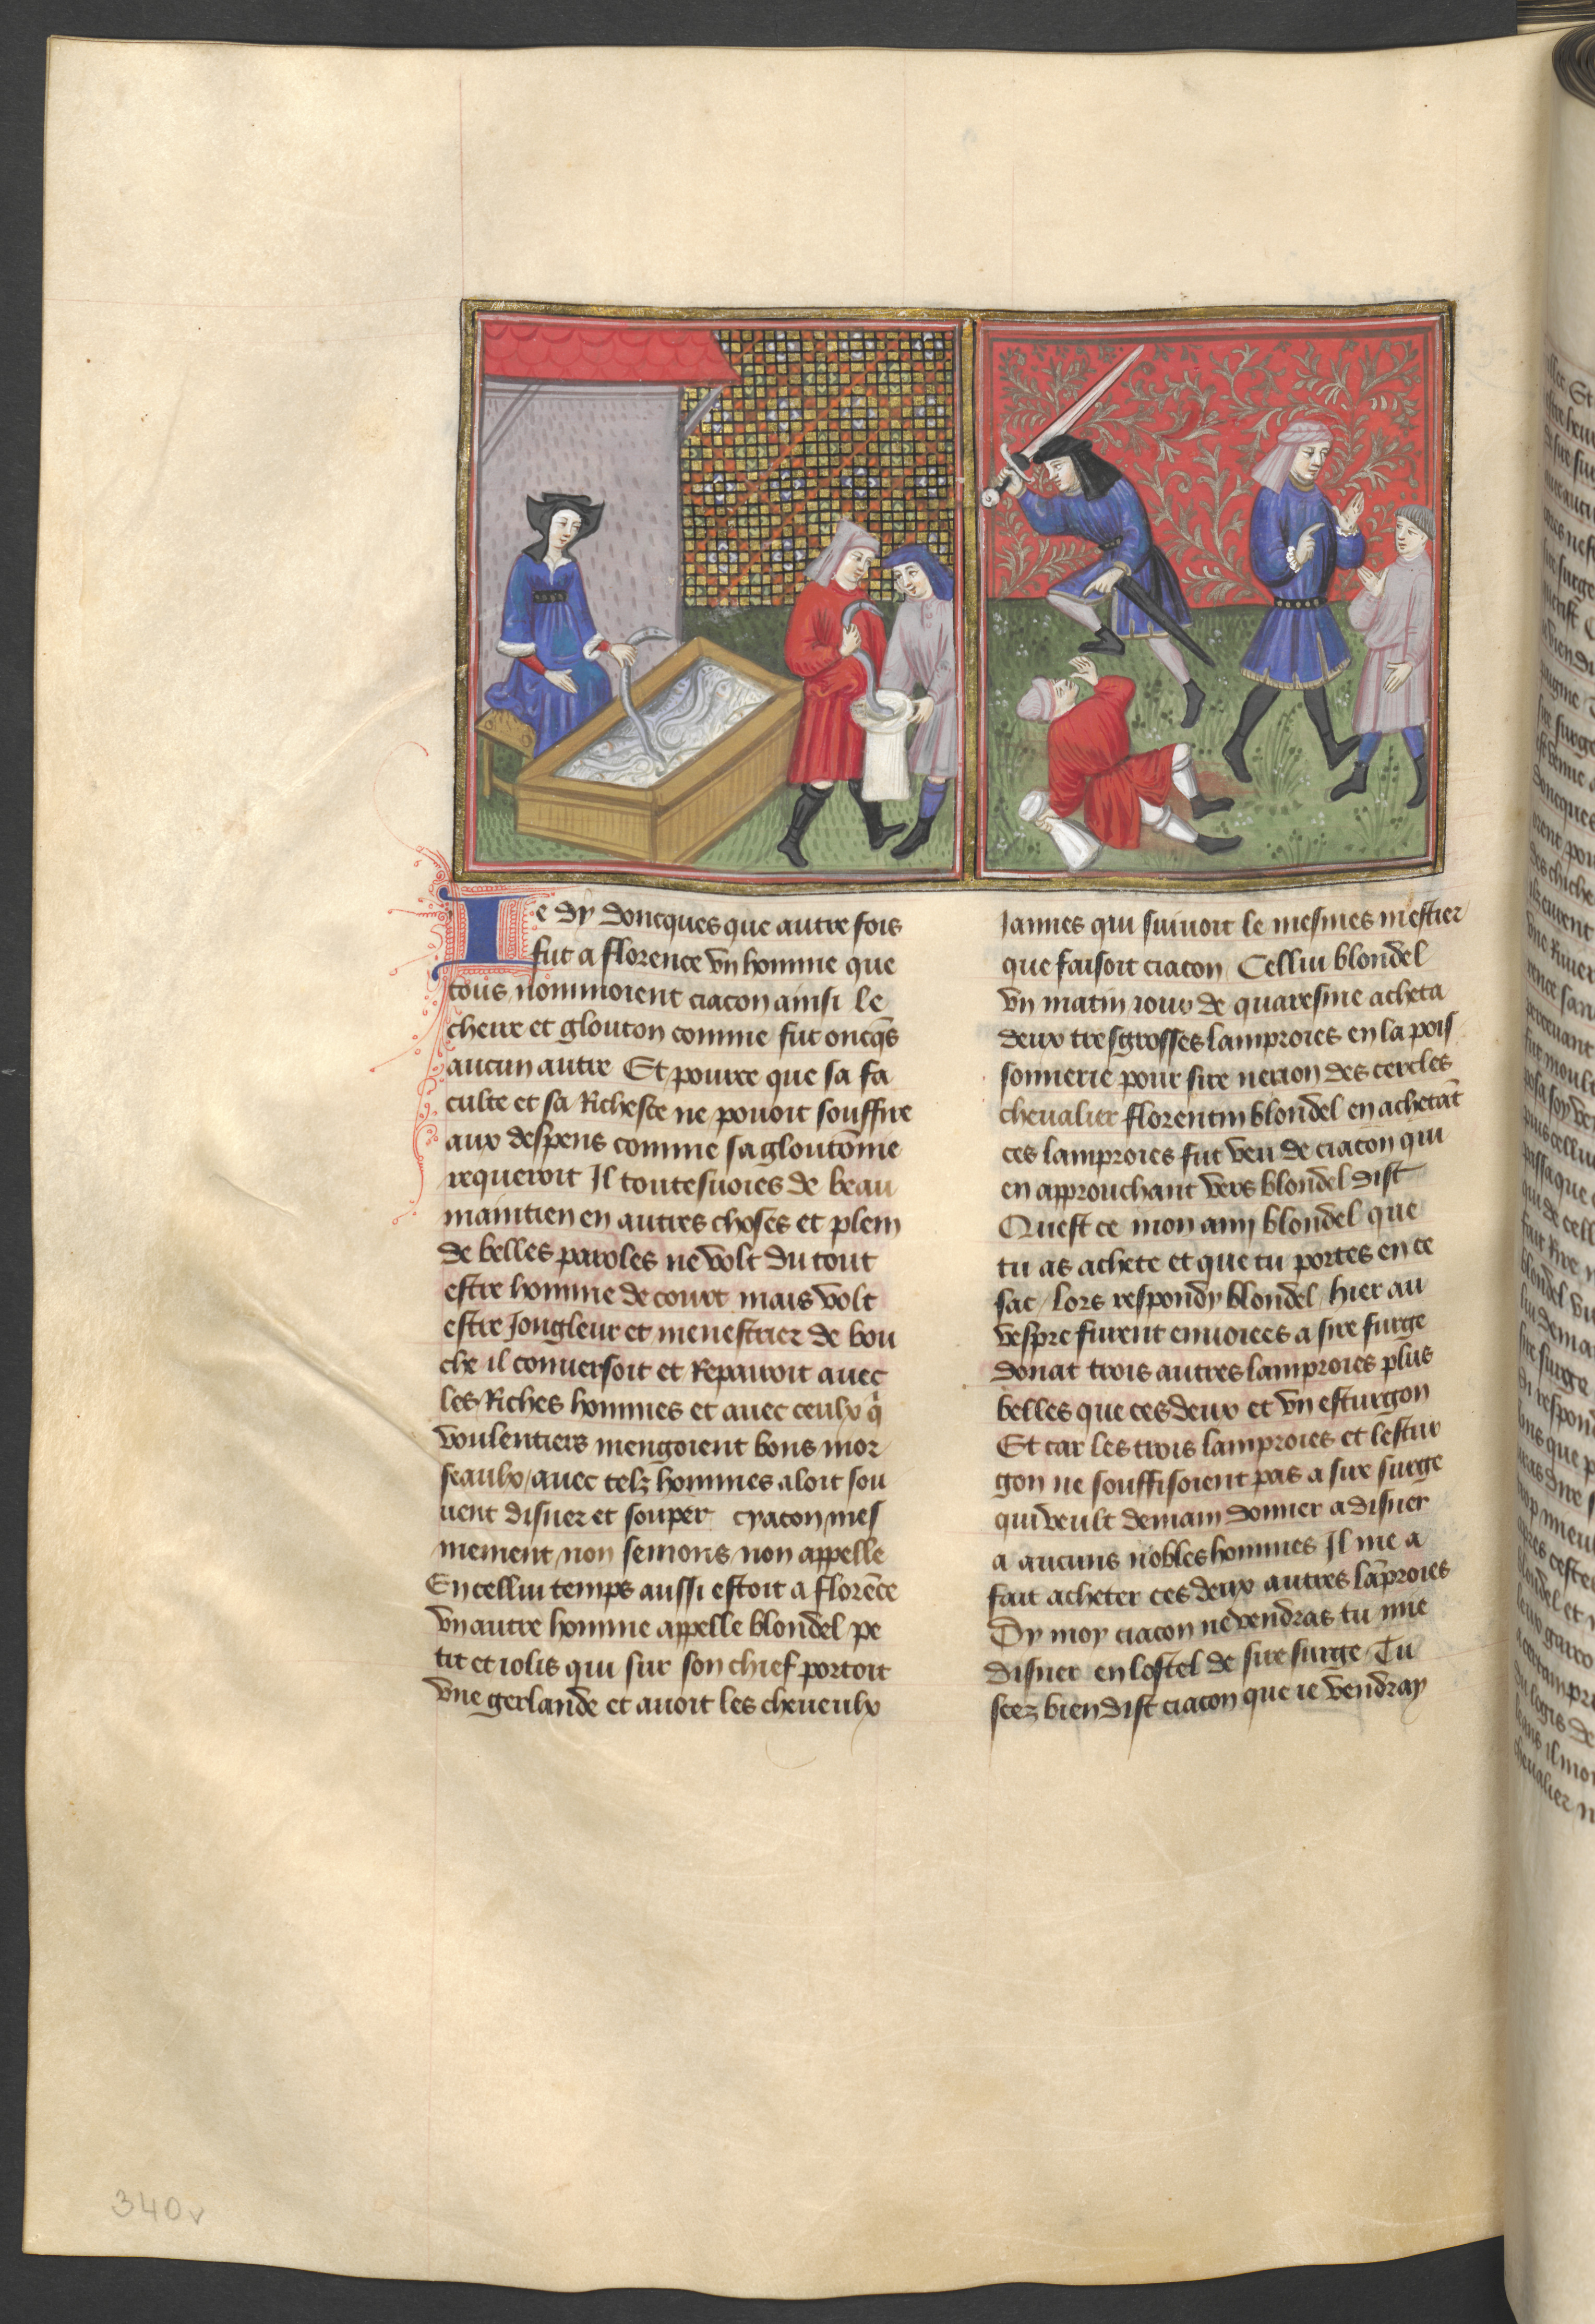 Ie dy doncques que autre fois
fut a florence vn homme que
tous nommoient ciacon ainsi le
cheur et glouton comme fut oncq̄s
aucun autre Et pource que sa fa
culte et sa Richesce ne pouoit souffire
aux despens comme sa gloutōnie
requeroit Il toutesuoies de beau
maintien en autres choses et plein
de belles paroles ne volt du tout
estre homme de court mais volt
estre Jongleur et menestrier de bou
che il conuersoit et Repairoit auec
les Riches hommes et auec ceulx q̄
voulentiers mengoient bons mor
seaulx / auec telz hommes aloit sou
uent disner et souper cyacon mes
mement non semons non appelle
En cellui temps aussi estoit a florēce
vn autre homme appelle blondel pe
tit et iolis qui sur son chief portoit
vne gerlande et auoit les cheueulx
Jaunes qui suiuoit le mesmes mestier
que faisoit ciacon Cellui blondel
vn matin Jour de quaresme acheta
deux tresgrosses lamproies en la pois
sonnerie pour sire nerion des cercles
cheualier florentin blondel en achetāt
ces lamproies fut veu de ciacon qui
en approuchant vers blondel dist
Quest ce mon amy blondel que
tu as achete et que tu portes en ce
sac / lors respondy blondel / hier au
vespre furent enuoiees a sire surge
donat trois autres lamproies plus
belles que ces deux et vn esturgon
Et car les trois lamproies et lestur
gon ne souffisoient pas a sire surge
qui veult demain donner a disner
a aucuns nobles hommes Il me a
fait acheter ces deux autres lāproies
Dy moy ciacon ne vendras tu mie
disner en lostel de sire surge Tu
scez bien dist ciacon que ie vendray
340v